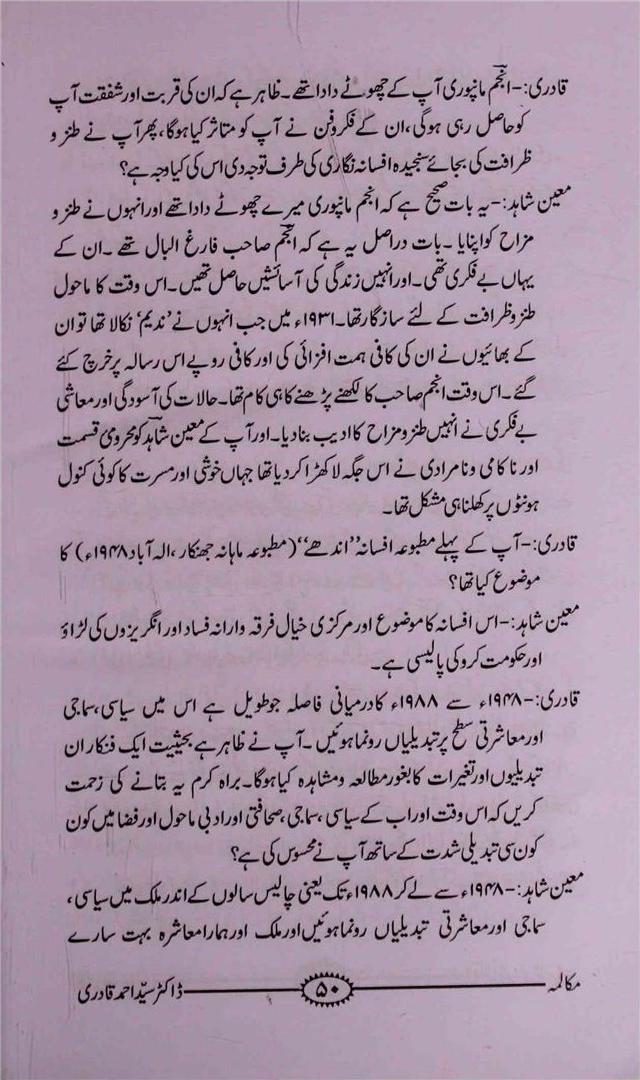 قادری:-انجم مانپوری آپ کے چھوٹے دادا تھے۔ ظاہر ہے کہ ان کی قربت اور شفقت آپ
کو حاصل رہی ہوگی، ان کے فکر و فن نے آپ کو متاثر کیا ہوگا، پھر آپ نے طنز و
ظرافت کی بجائے سنجیدہ افسانہ نگاری کی طرف توجہ دی اس کی کیا وجہ ہے؟
معین شاہد:- یہ بات صحیح ہے کہ انجم مانپوری میرے چھوٹے دادا تھے اور انہوں نے طنز و
مزاح کو اپنایا ۔ بات دراصل یہ ہے کہ انجم صاحب فارغ البال تھے ۔ ان کے
یہاں بے فکری تھی۔ اور انہیں زندگی کی آسائشیں حاصل تھیں۔ اس وقت کا ماحول
طنز و ظرافت کے لئے سازگار تھا۔ ۱۹۳۱ء میں جب انہوں نے ’ندیم‘ نکالا تھا تو ان
کے بھائیوں نے ان کی کافی ہمت افزائی کی اور کافی روپے اس رسالہ پر خرچ کئے
گئے۔ اس وقت انجم صاحب کا لکھنے پڑھنے کا ہی کام تھا۔ حالات کی آسودگی اور معاشی
بے فکری نے انہیں طنز و مزاح کا ادیب بنا دیا۔ اور آپ کے معین شاہد کو محرومیٔ قسمت
اور ناکامی و نامرادی نے اس جگہ لا کھڑا کر دیا تھا جہاں خوشی اور مسرت کا کوئی کنول
ہونٹوں پر کھلنا ہی مشکل تھا۔
قادری:- آپ کے پہلے مطبوعہ افسانہ ’’اندھے‘‘ (مطبوعہ ماہانہ جھنکار، الہ آباد ۱۹۴۸ء) کا
موضوع کیا تھا؟
معین شاہد:- اس افسانہ کا موضوع اور مرکزی خیال فرقہ وارانہ فساد اور انگریزوں کی لڑاؤ
اور حکومت کرو کی پالیسی ہے۔
قادری:- ۱۹۴۸ء سے ۱۹۸۸ء کا درمیانی فاصلہ جو طویل ہے اس میں سیاسی، سماجی
اور معاشرتی سطح پر تبدیلیاں رونما ہوئیں ۔ آپ نے ظاہر ہے بحیثیت ایک فنکار ان
تبدیلیوں اور تغیرات کا بغور مطالعہ و مشاہدہ کیا ہوگا۔ براہ کرم یہ بتانے کی زحمت
کریں کہ اس وقت اور اب کے سیاسی، سماجی، صحافتی اور ادبی ماحول اور فضا میں کون
کون سی تبدیلی شدت کے ساتھ آپ نے محسوس کی ہے؟
معین شاہد:- ۱۹۴۸ء سے لے کر ۱۹۸۸ء تک یعنی چالیس سالوں کے اندر ملک میں سیاسی،
سماجی اور معاشرتی تبدیلیاں رونما ہوئیں اور ملک اور ہمارا معاشرہ بہت سارے
مکالمہ ۵۰ ڈاکٹر سیّد احمد قادری